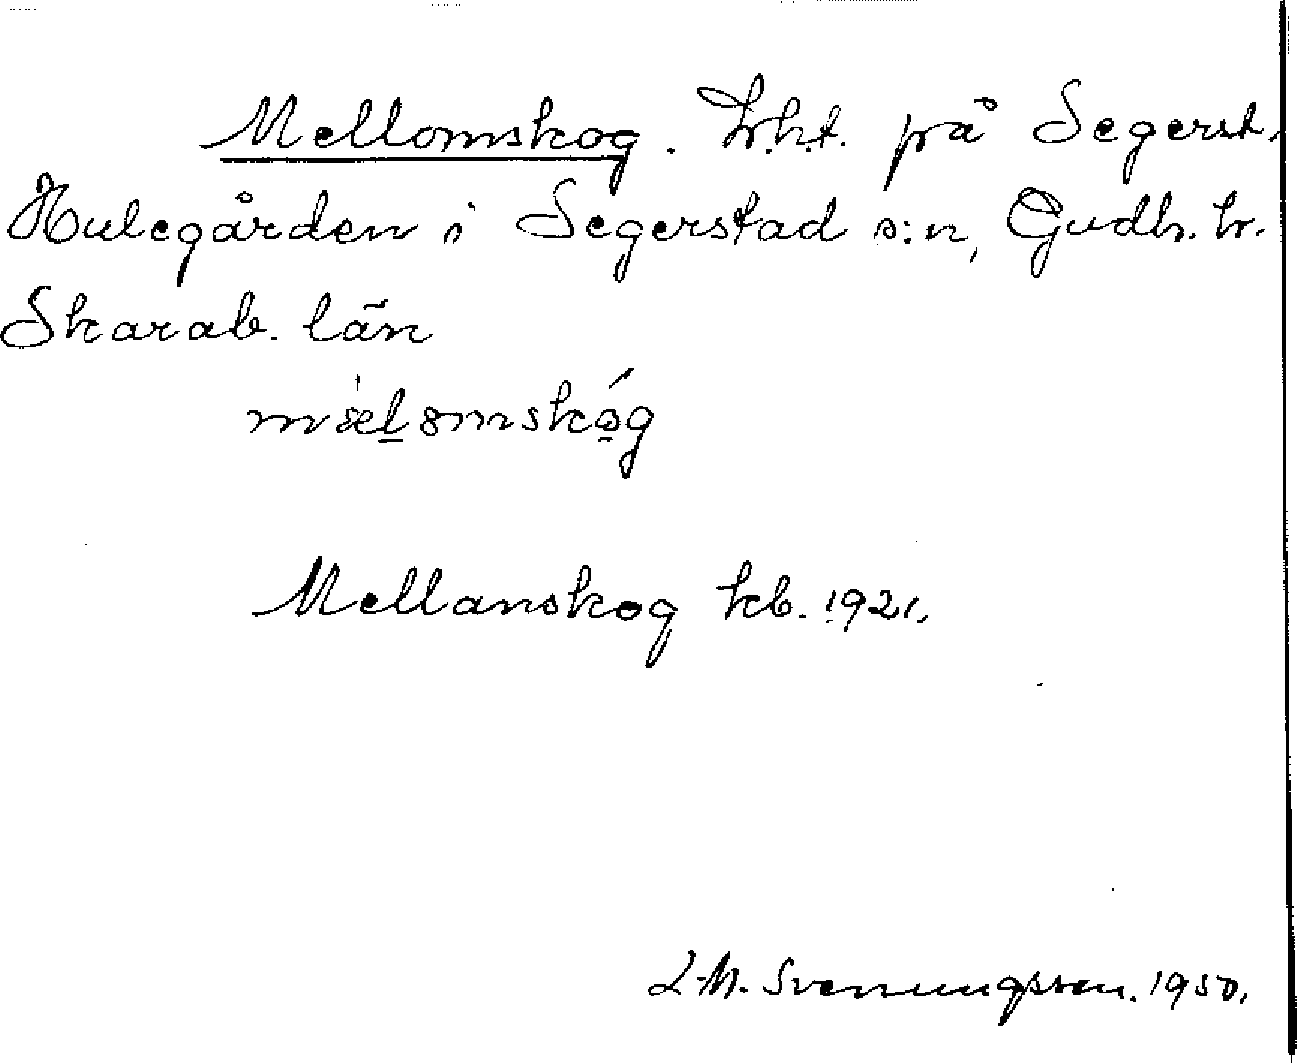 Mellomskog. Lht. på Segerst.
Hulegården i Segerstad s:n, Gudh. hr.
Skarab. län
Mellanskog kb. 1921.
L.M. Svenungsson. 1950.